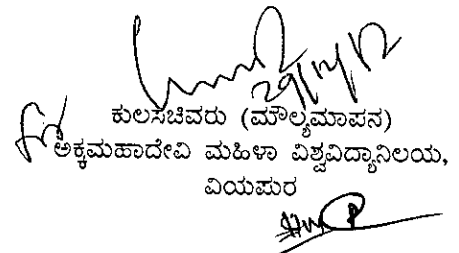 ಕುಲಸಚಿವರು (ಮೌಲ್ಯಮಾಪನ)
ಅಕ್ಕಮಹಾದೇವಿ ಮಹಿಳಾ ವಿಶ್ವವಿದ್ಯಾನಿಲಯ,
ವಿಯಪುರ